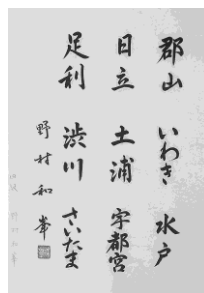 郡山 いわき 水戸
日立 土浦 宇都宮
足利 渋川 さいたま
野村和峯